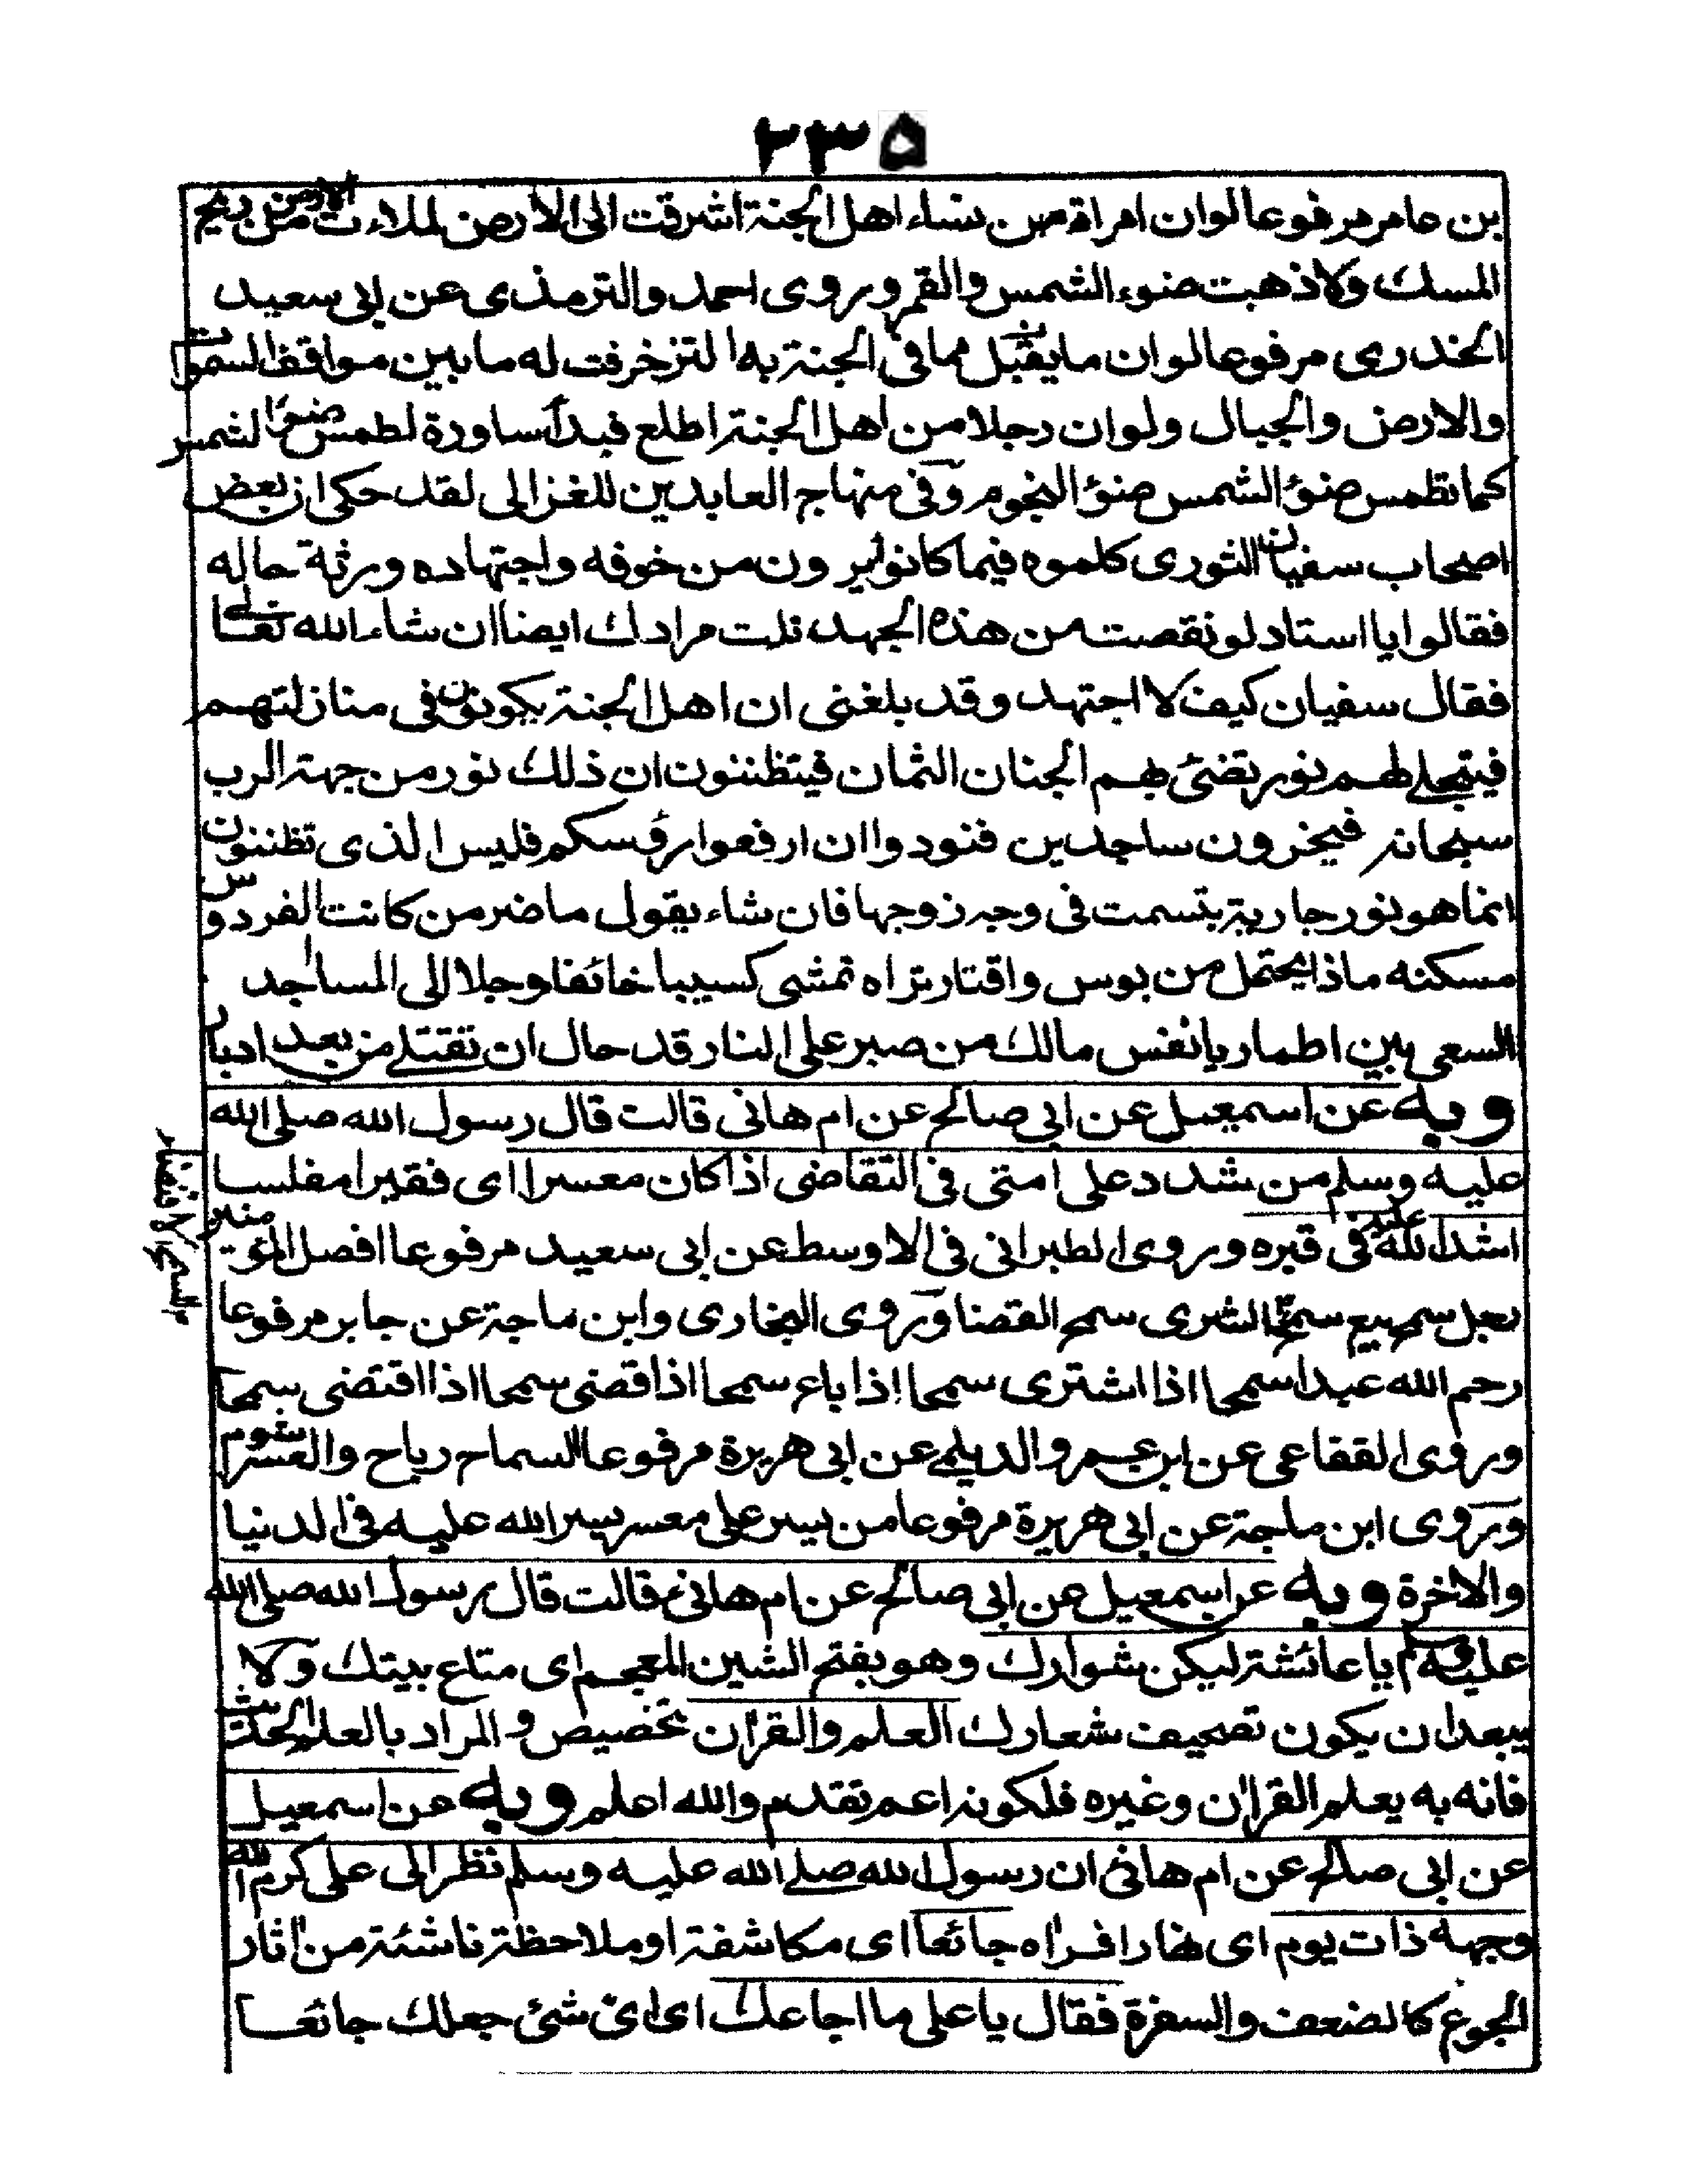 ۲۳۵
بن عامر مرفوعا لوان امراة من نساء اهل الجنة اشرقت الى الارض لملاءت الارض من ريح
المسك ولاذهبت ضوء الشمس والقمر وروى احمد والترمذى عن ابى سعيد
الخدرى مرفوعا لوان ما يقبل مما فى الجنة بدا لتزخرفت له ما بين موافق السموات
والارض والجبال ولوان رجلا من اهل الجنة اطلع فبدأ ساورة لطمس ضوء الشمس
كما تطمس ضوء الشمس ضوء النجوم وفى منهاج العابدين للغزالى لقد حكى ان بعض
اصحاب سفيان الثورى كلموه فيما كانوا يرون من خوفه واجتهاده ورثة حاله
فقالوا يا استاد لو نقصت من هذه الجهد نلت مرادك ايضا ان شاء الله تعالى
فقال سفيان كيف لا اجتهد وقد بلغنى ان اهل الجنة يكونون فى منازلتهم
فيتجلى لهم نور تضئ لهم الجنان الثمان فيتظننون ان ذلك نور من جهة الرب
سبحانه فيخرون ساجدين فنودوا ان ارفعوا رؤسكم فليس الذى تظننون
انما هو نور جارية بتسمت فى وجه زوجها فان شاء يقول ما ضر من كانت الفردوس
مسكنه ماذا يحتمل من بوس واقتار تراه تمشى كسيبا خائفا وجلا الى المساجد
السعى بين اطمار يا نفس مالك من صبر على النار قد حال ان تقتلى من بعد ادبار
وبه عن اسمعيل عن ابى صالح عن ام هانى قالت قال رسول الله صلى الله
عليه وسلم من شدد على امتى فى التقاضى اذا كان معسرا اى فقيرا مفلسا
اشد الله عليه فى قبره وروى الطبرانى فى الاوسط عن ابى سعيد مرفوعا افضل المؤمنين
رجل سمح بيع سمح الشرى سمح القضا وروى البخارى وابن ماجة عن جابر مرفوعا
رحم الله عبدا سمحا اذا اشترى سمحا اذا باع سمحا اذا قضى سمحا اذا اقتضى سمحا
وروى القفاعى عن ابن عمر والديلمى عن ابى هريرة مرفوعا السماح رباح والعسر شوم
وروى ابن ماجة عن ابى هريرة مرفوعا من يسر على معسر يسر الله عليه فى الدنيا
والاخرة وبه عن اسمعيل عن ابى صالح عن ام هانئ قالت قال رسول الله صلى الله
عليه وسلم يا عائشة ليكن شوارك وهو بفتح الشين المعجم اى متاع بيتك ولا
يبعد ان يكون تصحيف شعارك العلم والقران تخصيص والمراد بالعلم الحديث
فانه به يعلم القران وغيره فلكونه اعم تقدم والله اعلم وبه عن اسمعيل
عن ابى صالح عن ام هانئ ان رسول الله صلى الله عليه وسلم نظر الى على كرم الله
وجهه ذات يوم اى نهارا فراه جائعا اى مكاشفة او ملاحظة ناشئة من اثار
الجوع كالضعف والسفرة فقال يا على ما اجاعك اى اىّ شئ جعلك جائعا